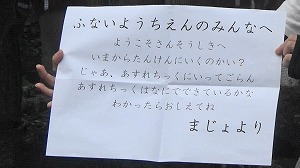 ふないようちえんのみんなへ
ようこそさんそうしきへ
いまからたんけんにいくのかい?
じゃあ、あすれちっくにいってごらん
あすれちっくはなにでできているかな
わかったらおしえてね
まじょより